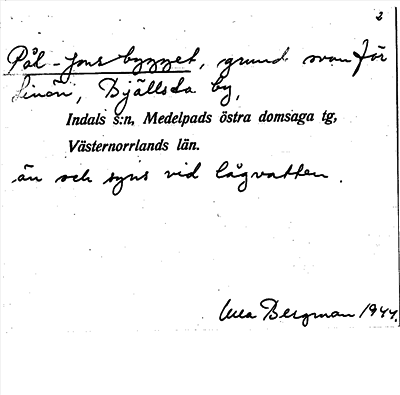 2
Pål-Jons bygget, grund ovanför
Linön, Bjällsta by,
Indals s:n, Medelpads östra domsaga tg,
Västernorrlands län.
ån och syns vid lågvatten.
Bergman 1944.